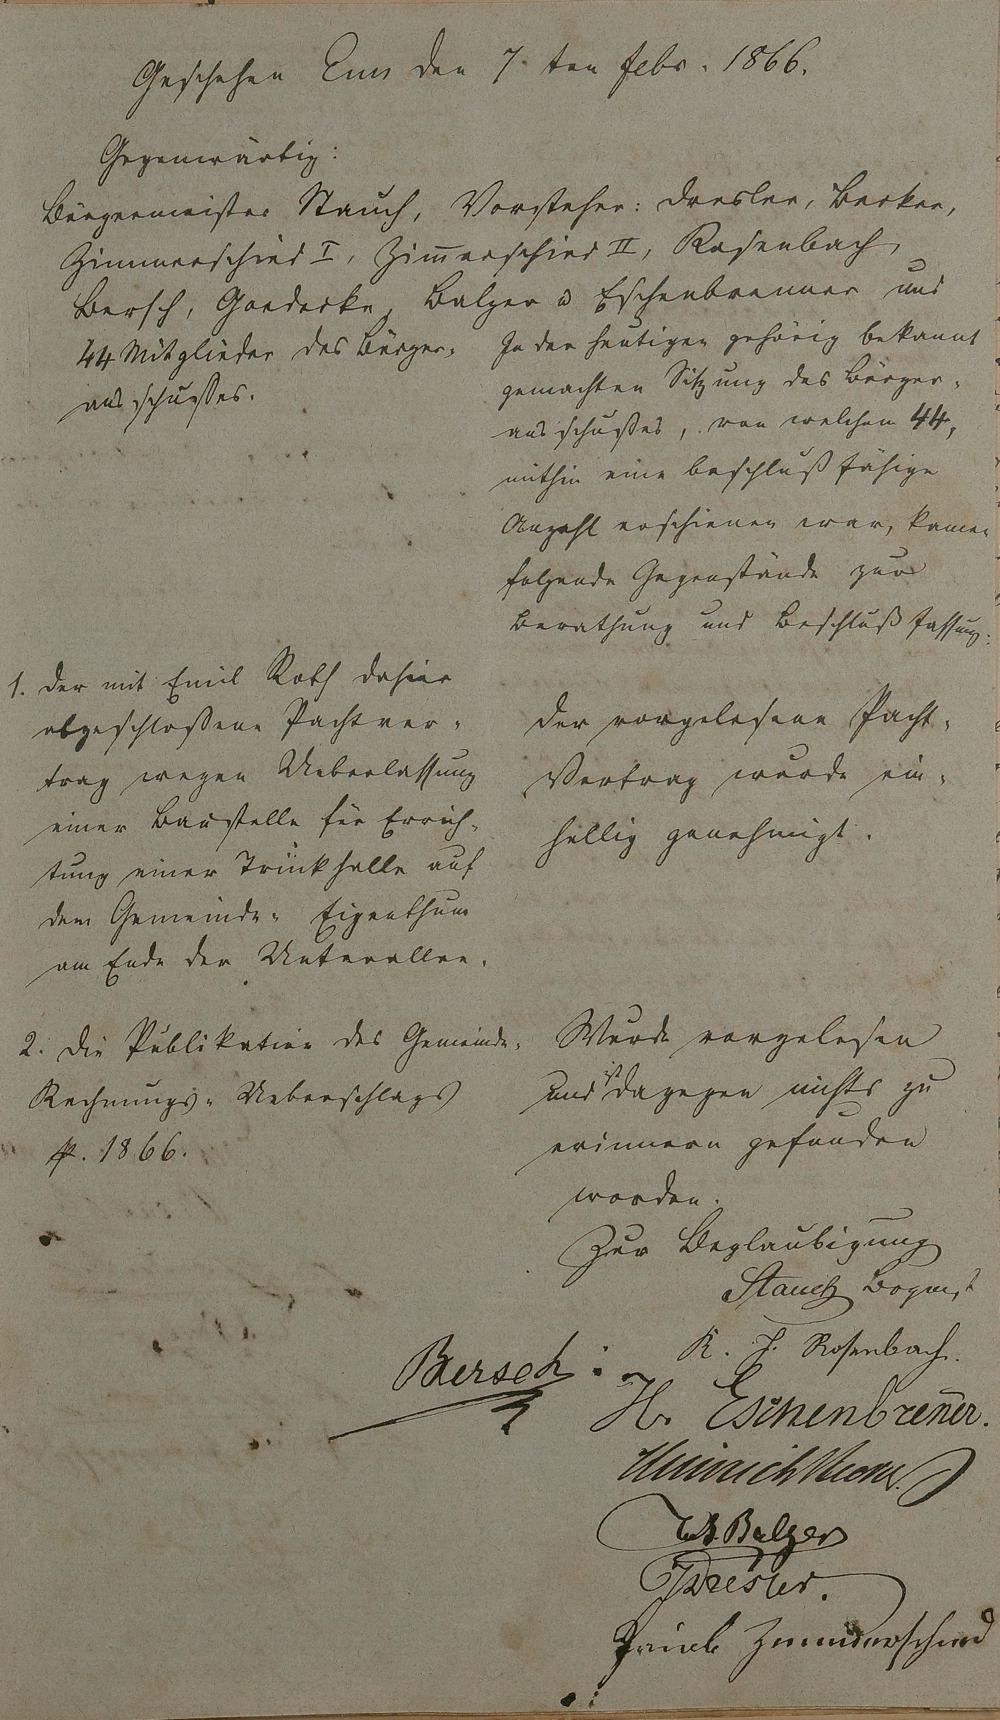 Geschehen Ems den 7. ten Febr. 1866.
Gegenwärtig:
Bürgermeister Stauch, Vorsteher: Dresler, Becker,
Zimmerschied I, Zimerschied II, Rosenbach,
Bersch, Goedecke, Balzer u Eschenbrenner und
44 Mitglieder des Bürger-
ausschußes.
In der heutigen gehörig bekannt
gemachten Sitzung des Bürger-
ausschußes, von welchen 44,
mithin eine beschlußfähige
Anzahl erschienen war, kamen
folgende Gegenstände zur
Berathung und Beschlußfassung:
1. Der mit Emil Roth dahier
abgeschloßene Pachtver-
trag wegen Ueberlassung
einer Baustelle für Errich-
tung einer Trinkhalle auf
dem Gemeinde- Eigenthum
am Ende der Unterallee.
Der vorgelesene Pacht-
Vertrag wurde ein-
hellig genehmigt.
2. Die Publikation des Gemeinde-
Rechnungs- Ueberschlags
p. 1866.
Wurde vorgelesen
und ist dagegen nichts zu
erinnern gefunden
worden.
Zur Beglaubigung
Stauch Bgmst
K. J. Rosenbach.
Bersch
H. Eschenbrener.
Heinrich
W. Balzer
Dresler.
Zimmerschied